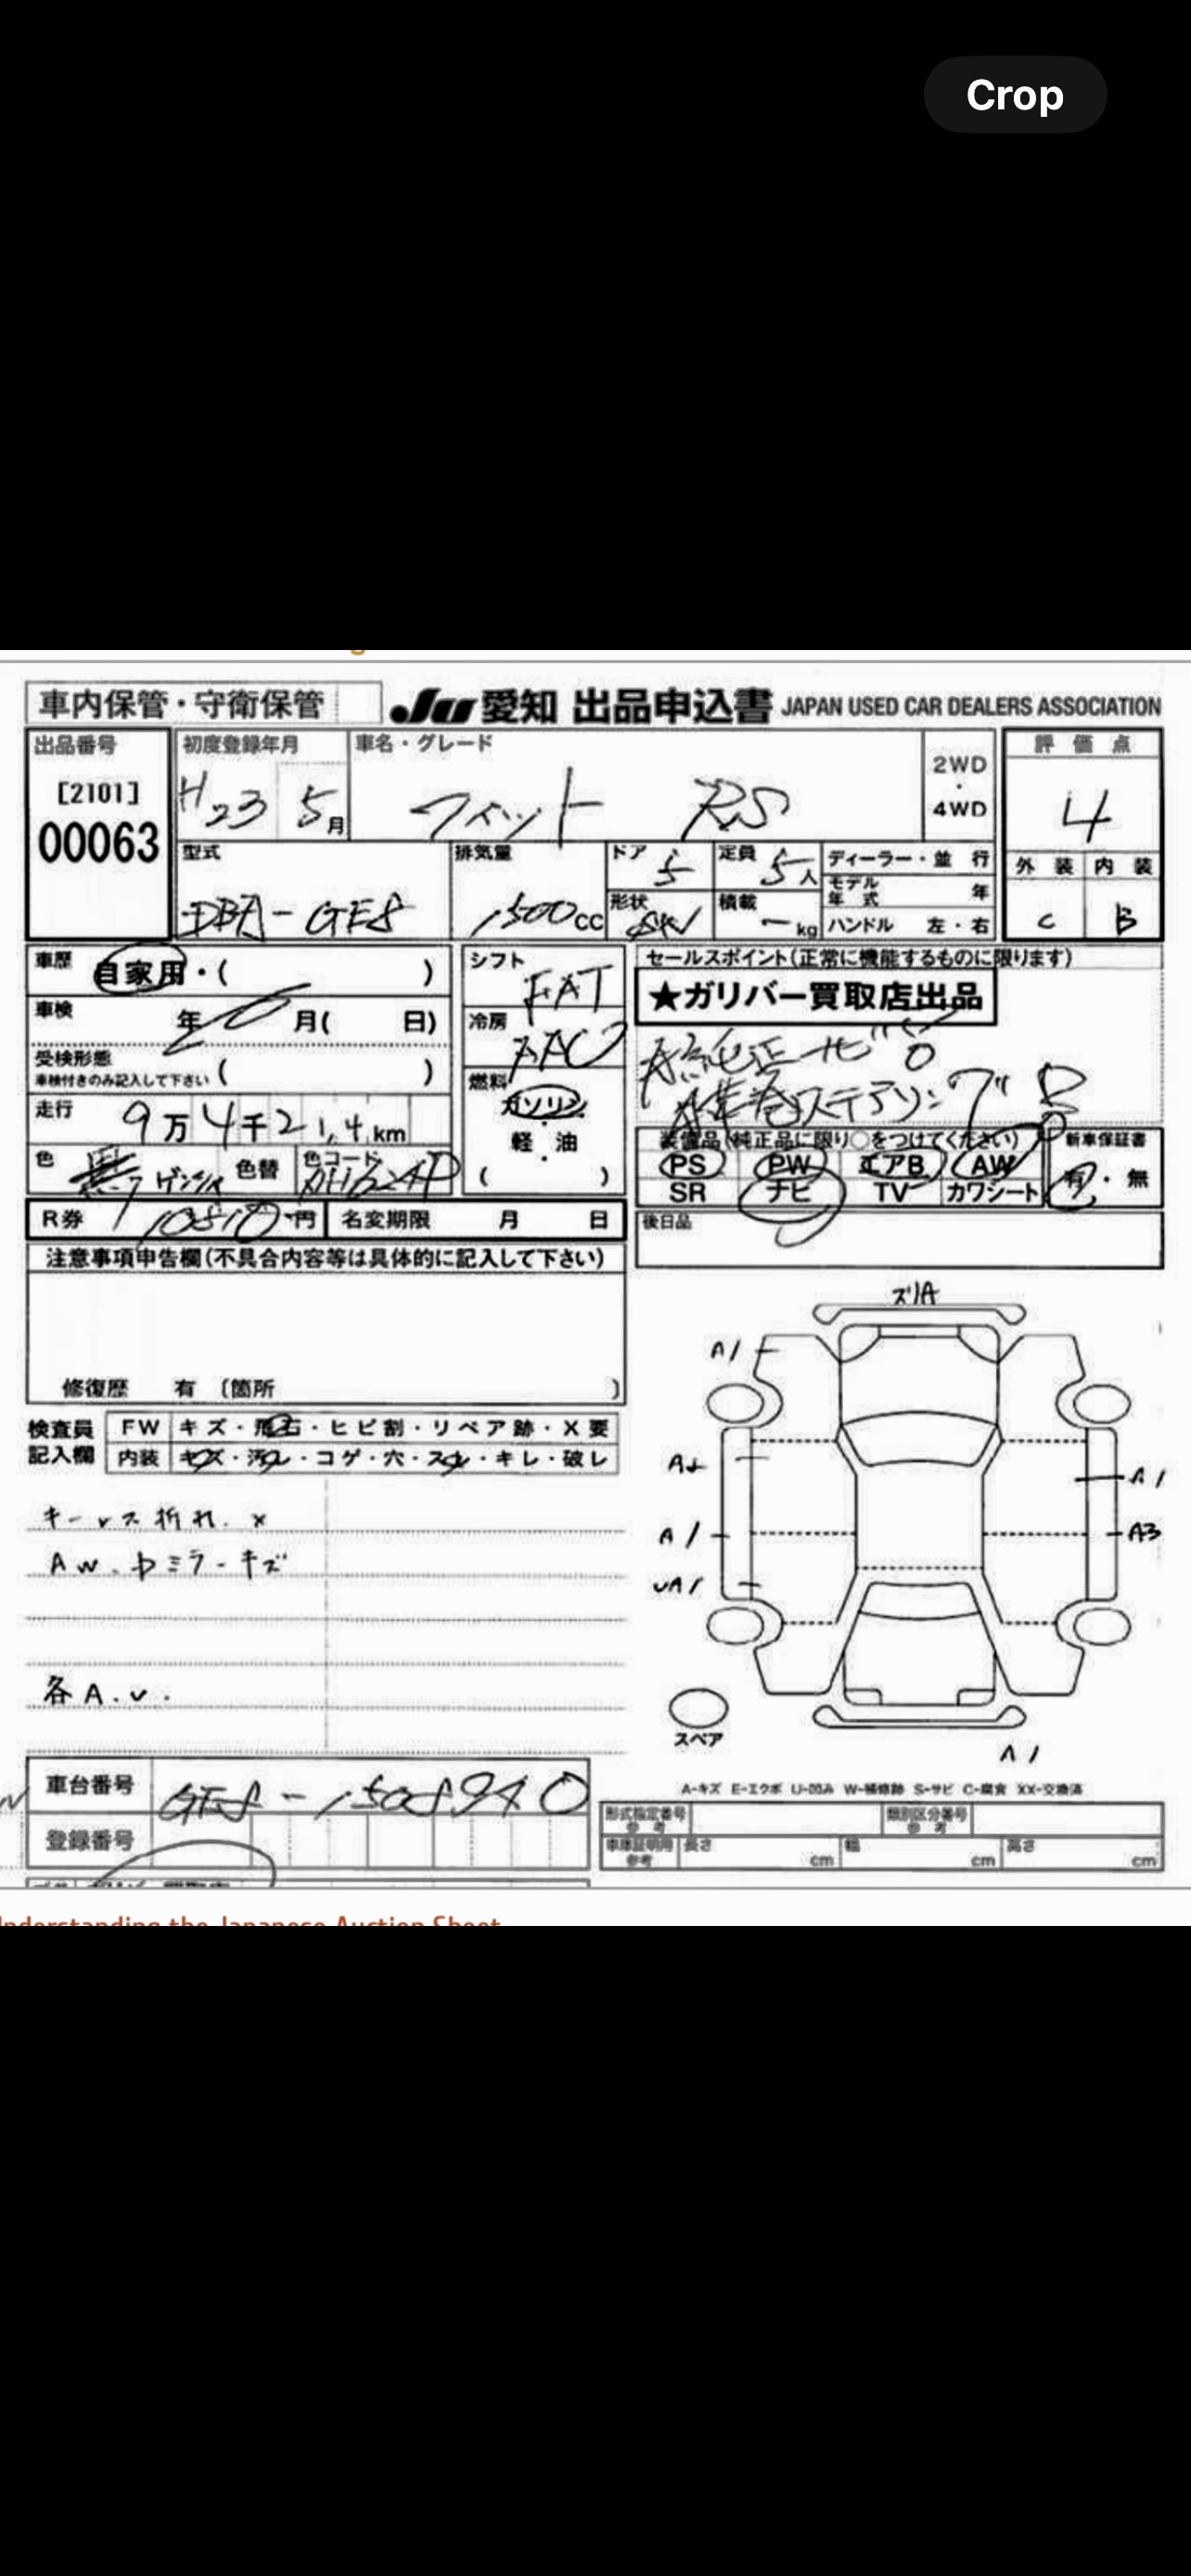 Crop
車内保管・守衛保管
JU 愛知 出品申込書 JAPAN USED CAR DEALERS ASSOCIATION
出品番号 初度登録年月 車名・グレード 2WD・4WD 評価点
[2101]
00063
H23 5月 フィット RS 4
型式 排気量 ドア 5 定員 5人 ディーラー・並行
外装 内装
DBA-GE8 1500cc 形状 積載 ーkg モデル年式 年
ハンドル 左・右
C B
車歴 自家用・( )
シフト FAT
セールスポイント(正常に機能するものに限ります)
★ガリバー買取店出品
車検 年 月( 日)
冷房 AAC
純正ナビ
受検形態 ( )
車検付きのみ記入して下さい
燃料 ガソリン・軽油
( )
革巻ステアリング
走行 9万4千214km
装備品(純正品に限り○をつけてください) 新車保証書
色 色替 色コード
PS PW エアB AW
有・無
SR ナビ TV カワシート
R券 10510円 名変期限 月 日
後日品
注意事項申告欄(不具合内容等は具体的に記入して下さい)
修復歴 有 〔箇所 〕
検査員記入欄 FW キズ・飛石・ヒビ割・リペア跡・X要
内装 キズ・汚レ・コゲ・穴・スレ・キレ・破レ
キーレス折れ.x
AW.中ミラーキズ
各A.U.
ズリA
A1
A2
A1
A1
A3
UA1
スペア
A1
A-キズ E-エクボ U-凹み W-補修跡 S-サビ C-腐食 XX-交換済
車台番号
登録番号
形式指定番号 参考 類別区分番号 参考
車庫証明用 参考 長さ cm 幅 cm 高さ cm
Understanding the Japanese Auction Sheet